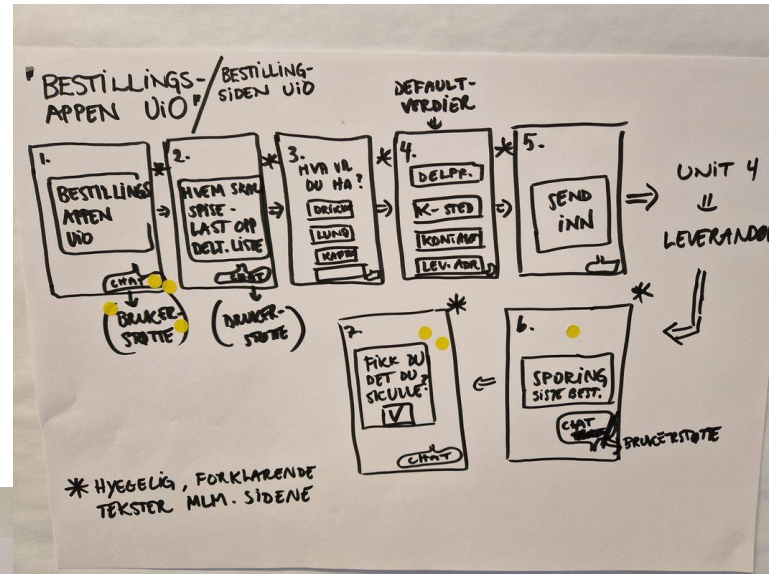 "BESTILLINGS-
APPEN UiO" /
BESTILLING-
SIDEN UiO
DEFAULT-
VERDIER
1.
BESTILLINGS
APPEN
UiO
CHAT
(BRUKER-
STØTTE)
2.
HVEM SKAL
SPISE -
LAST OPP
DELT. LISTE
CHAT
(BRUKER-
STØTTE)
3.
HVA VIL
DU HA?
DRIKKE
LUNSJ
KAFFE
4.
DELPR.
K-STED
KONTAKT
LEV. ADR.
5.
SEND
INN
UNIT 4
LEVERANDØR
6.
SPORING
SISTE BEST.
CHAT
BRUKERSTØTTE
7.
FIKK DU
DET DU
SKULLE?
CHAT
* HYGGELIG, FORKLARENDE
TEKSTER MLM. SIDENE